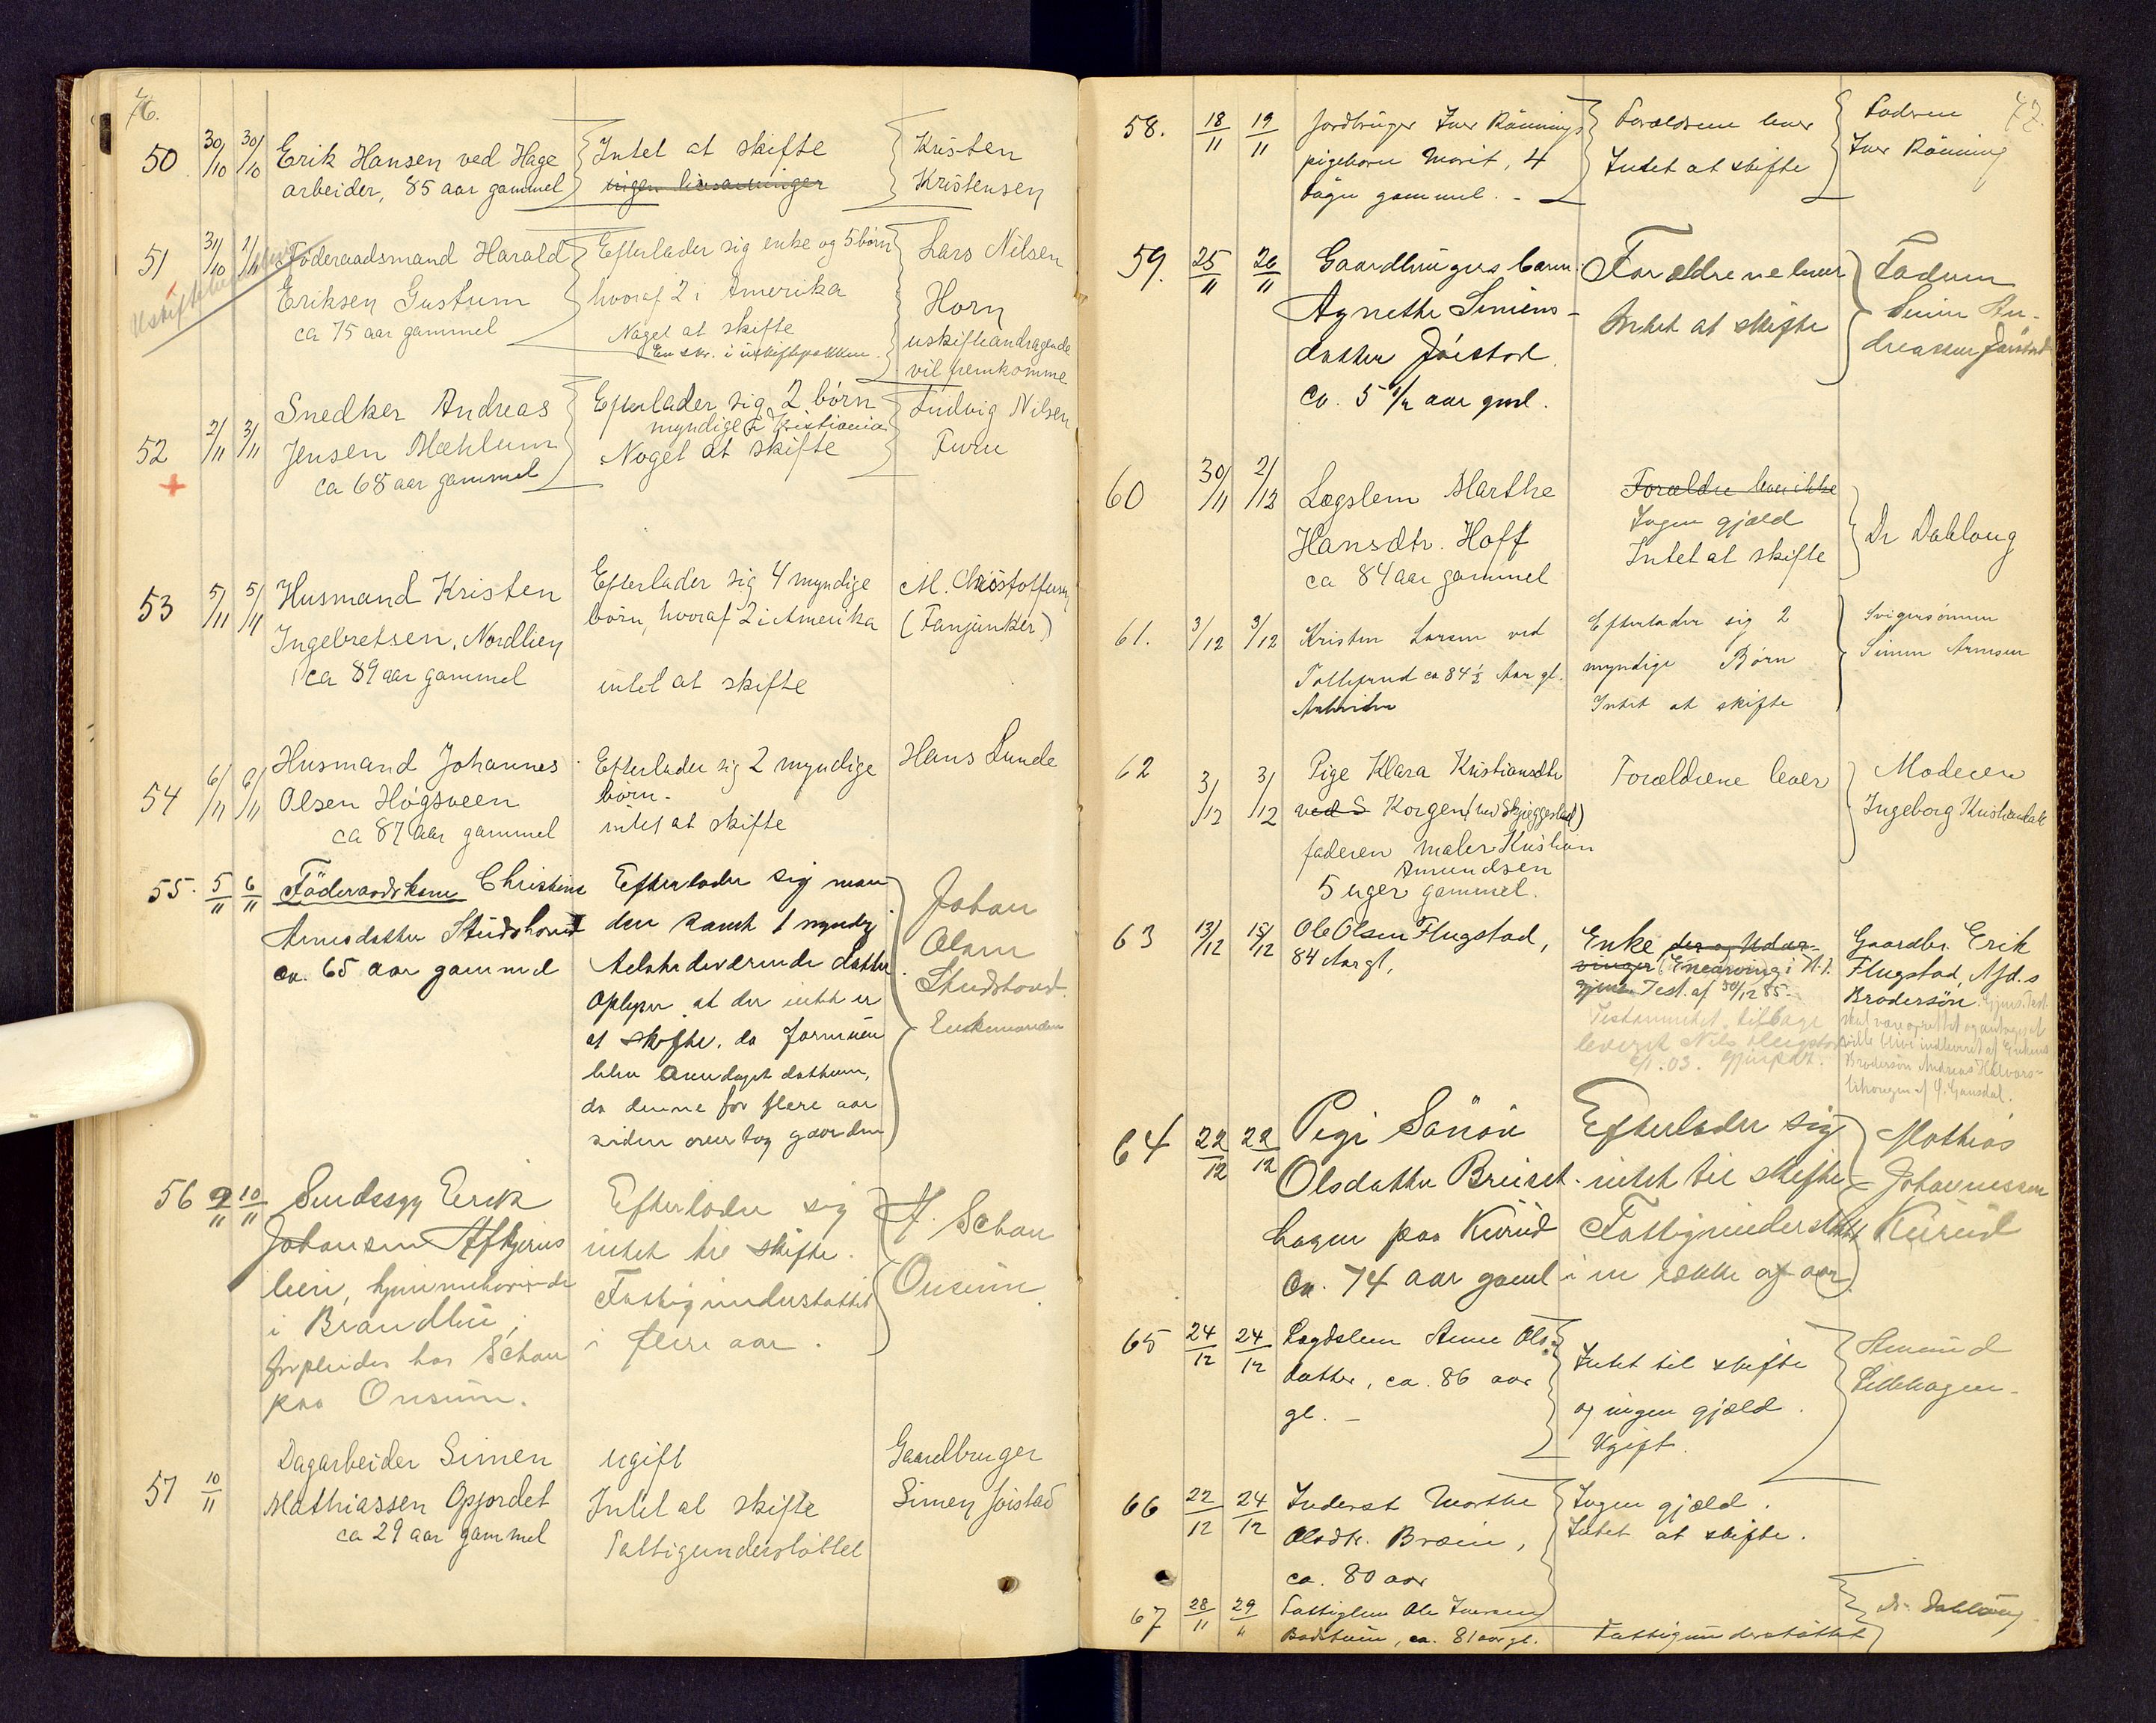 76.
50 30/10 30/10 Erik Hansen ved Hage Intet at skifte Kristen
arbeider, 85 aar gammel ingen Kristensen
51 31/10 1/11 Föderaadsmand Harald Efterlader sig enke og 5 börn Lars Nilsen
Eriksen Gustum hvoraf 2 i Amerika Horn
ca 75 aar gammel Noget at skifte uskifteandragende
En skr. i uskiftepakken. vil fremkomme
52 2/11 3/11 Snedker Andreas Efterlader sig 2 börn Ludvig Nilsen
myndige i Kristiania
Jensen Mæhlum Noget at skifte Furu
ca 68 aar gammel
53 5/11 5/11 Husmand Kristen Efterlader sig 4 myndige M. Christoffersen
Ingebretsen, Nordlien börn, hvoraf 2 i Amerika (Fanjunker)
ca 89 aar gammel intet at skifte
54 6/11 6/11 Husmand Johannes Efterlader sig 2 myndige Hans Lunde
Olsen Högsveen börn.
ca 87 aar gammel intet at skifte
55. 5/11 6/11 Föderaadskone Christine Efterlader sig man- Johan
Arnesdatter Studshoud den samt 1 myndig Olsen
ca. 65 aar gammel tilstedeværende datter. Studshoud.
Oplyser at der intet er Enkemanden
at skifte, da formuen
blev datteren,
da denne for flere aar
siden overtog gaarden
56 9/11 10/11 Sindssyg Eerik Efterlader sig H. Schou
Johansen intet til skifte. Onsum.
lien, hjemmehörende Fattigunderstöttet
i Brandbu, i flere aar.
forpleides hos Schou
paa Onsum.
57 10/11 Dagarbeider Simen ugift Gaardbruger
Mathiassen Opjordet Intet at skifte Simen Joistad
ca 29 aar gammel Fattigunderstöttet
77.
58. 18/11 19/11 Jordbruger Iver Rönnings Forældrene lever Faderen
pigebarn Marit, 4 Intet at skifte Iver Rönning
dage gammel. -
59. 25/11 26/11 Gaardbrugers barn Forældrene lever Faderen
Agnethe Simens- Intet at skifte Simen An-
datter Jöistad. dreassen Jöistad
Ca. 5 1/2 aar gml.
60 30/11 2/12 Lægslem Marthe Forældre lever ikke
Hansdtr. Hoff Ingen gjæld Dr Dahloug
ca 84 aar gammel Intet at skifte
61. 3/12 3/12 Kristen Larsen ved Efterlader sig 2 Svigersönnen
ca 84 1/2 Aar gl. myndige Börn Simen Arnesen
Arbeider Intet at skifte
62 3/12 3/12 Pige Klara Kristiansdtr Forældrene lever Moderen
ved S Korgen (ved Skjeggestad) Ingeborg Kristiansdatt
faderen maler Kristian
Amundsen
5 uger gammel.
63 13/12 18/12 Ole Olsen Flugstad, Enke, der og Udar- Gaardbr. Erik
84 Aar gl. vinger (Enearving i H.t. Flugstad, Afd.s
gjens. Test. af 30/12 85. Brodersön. Gjens. Test.
Testamentet tilbage skal være oprettet og
leveret Nils ville blive indleveret af Enkens
6/1.03. Brodersön Andreas Halvors-
af Ö. Gausdal.
64 22/12 22/12 Pige Sönöi Efterlader sig Mathias
Olsdatter Bruset- intet til skifte Johannessen
hagen paa Kurud Fattigunderstöttet Kurud
Ca. 74 aar gaml i en række af aar
65 24/12 24/12 Lægdslem Anne Ols- Intet til skifte Amund
datter, ca. 86 aar og ingen gjæld. Lillehagen.
gl. - Ugift.
66 22/12 24/12 Inderst Marthe Ingen gjæld.
Olsdtr. Bræin, Intet at skifte.
ca. 80 aar
67 28/11 29/11 Fattiglem Ole Iversen Dr. Dahloug.
Badstuen, ca. 81 aar gl. Fattigunderstöttet